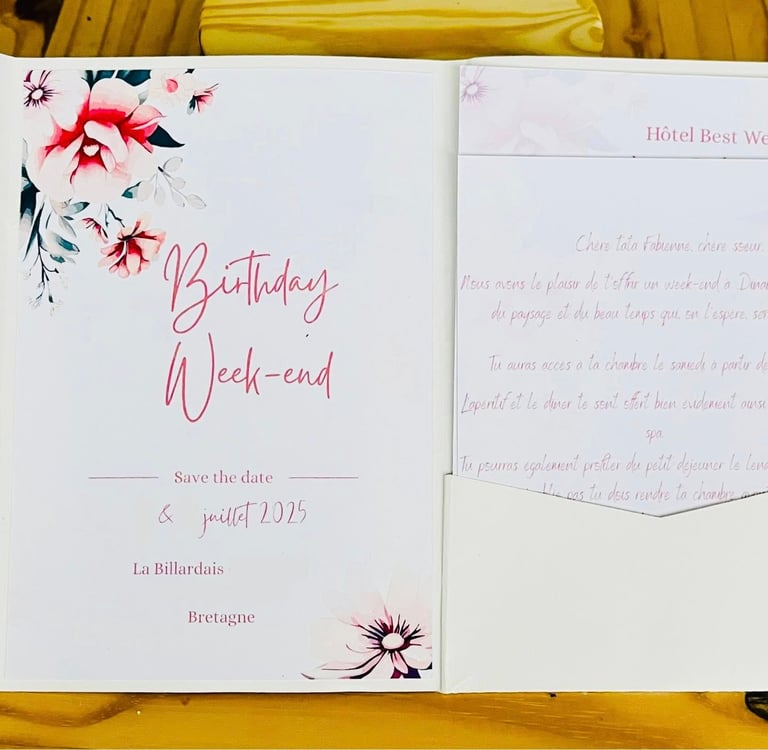 Birthday
Week-end
Save the date
& juillet 2025
La Billardais
Bretagne
Hôtel Best We
Chère tata Fabienne, chère soeur,
Nous avons le plaisir de t'offrir un week-end a Dinar
du paysage et du beau temps qui, on l'espère, ser
Tu auras acces a ta chambre le samedi à partir de
L'apéritif et le diner te sont offert bien evidement ainsi
spa.
Tu pourras egalement profiter du petit dejeuner le lend
pas tu dois rendre ta chambre